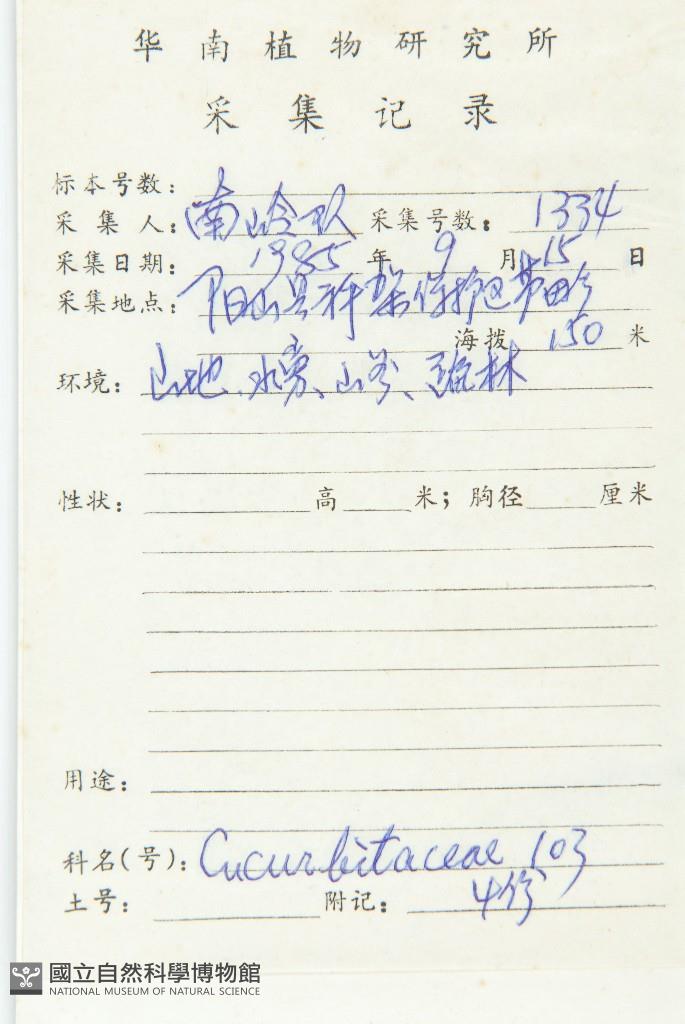 华南植物研究所
采集记录
标本号数：
采集人：南岭队 采集号数：1334
采集日期：1985年9月15日
采集地点：阳山县秤架保护区
海拨 150 米
环境：山地、水旁、山谷、疏林
性状： 高 米；胸径 厘米
用途：
科名(号)：Cucurbitaceae 103
土号： 附记：4份
國立自然科學博物館
NATIONAL MUSEUM OF NATURAL SCIENCE